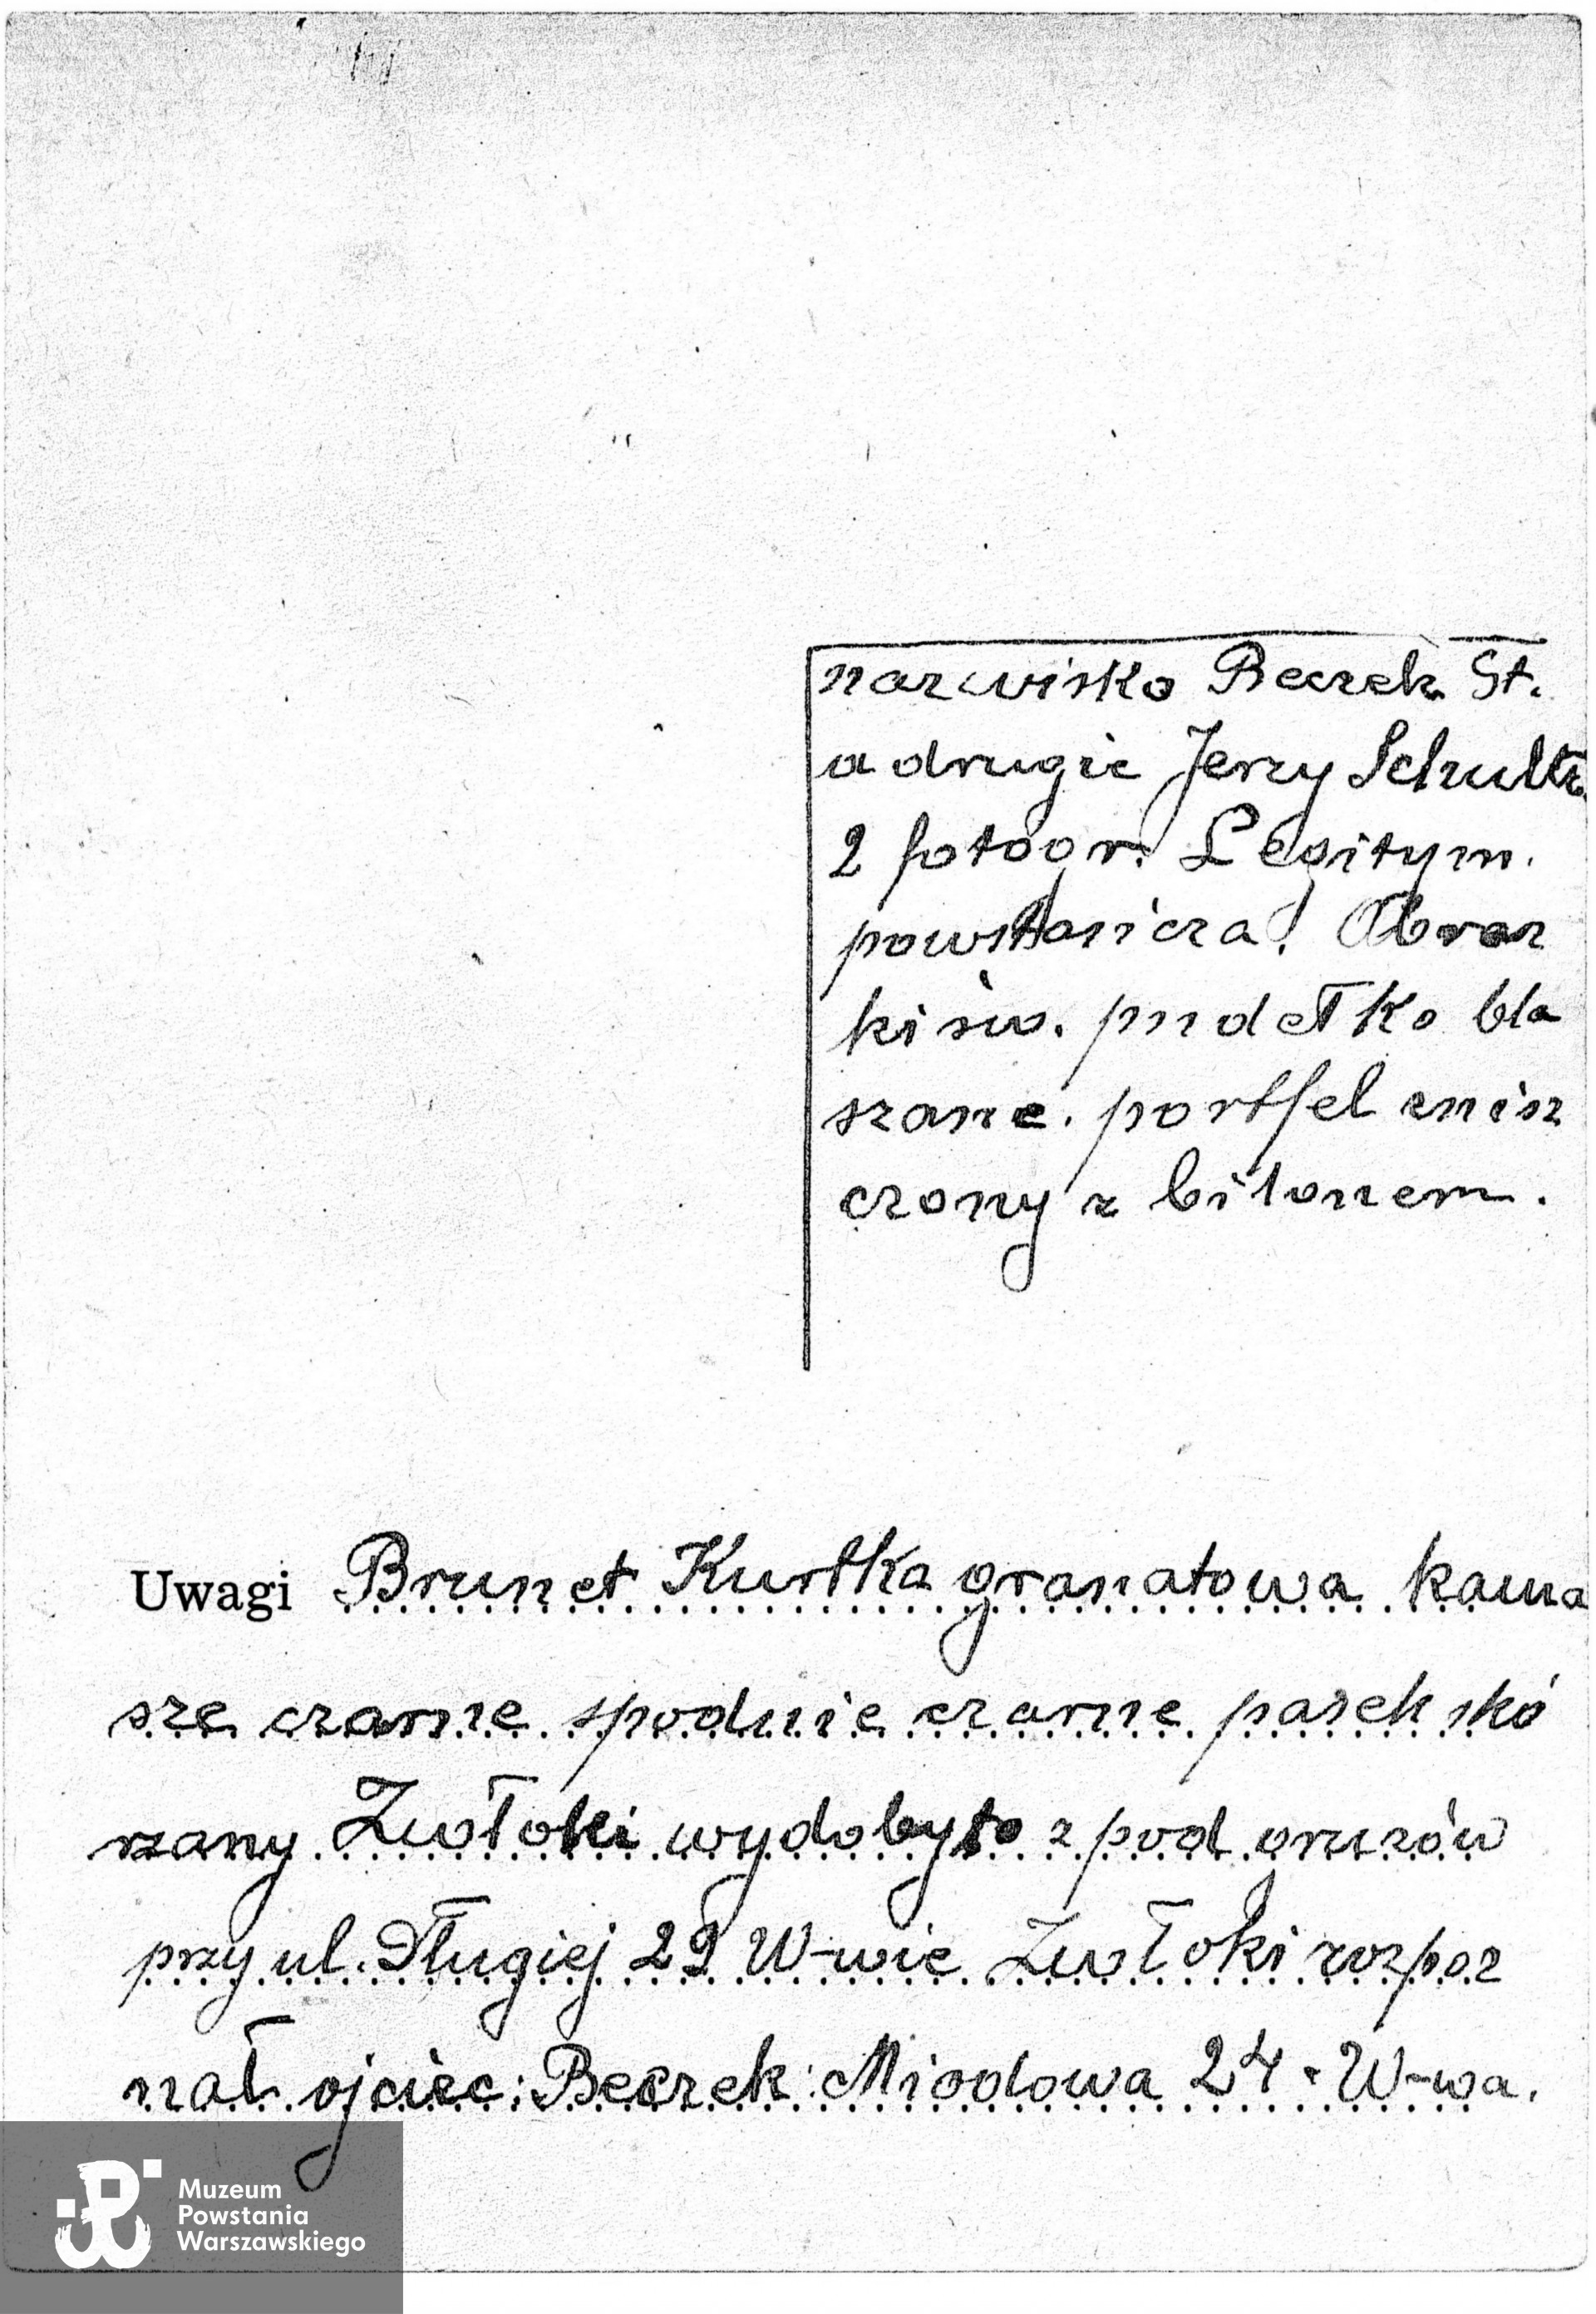 nazwisko Beczek St.
a drugie Jerzy Schultz
2 fotogr. Legitym.
powstańcza! Obraz
ki św. pudełko bla
szane. portfel znisz
czony z bilonem.
Uwagi Brunet Kurtka granatowa kama
sze czarne spodnie czarne pasek skó
rzany Zwłoki wydobyto z pod gruzów
przy ul. Długiej 29 W-wie Zwłoki rozpoz
nał ojciec: Beczek: Miodowa 24 · W-wa.
Muzeum
Powstania
Warszawskiego